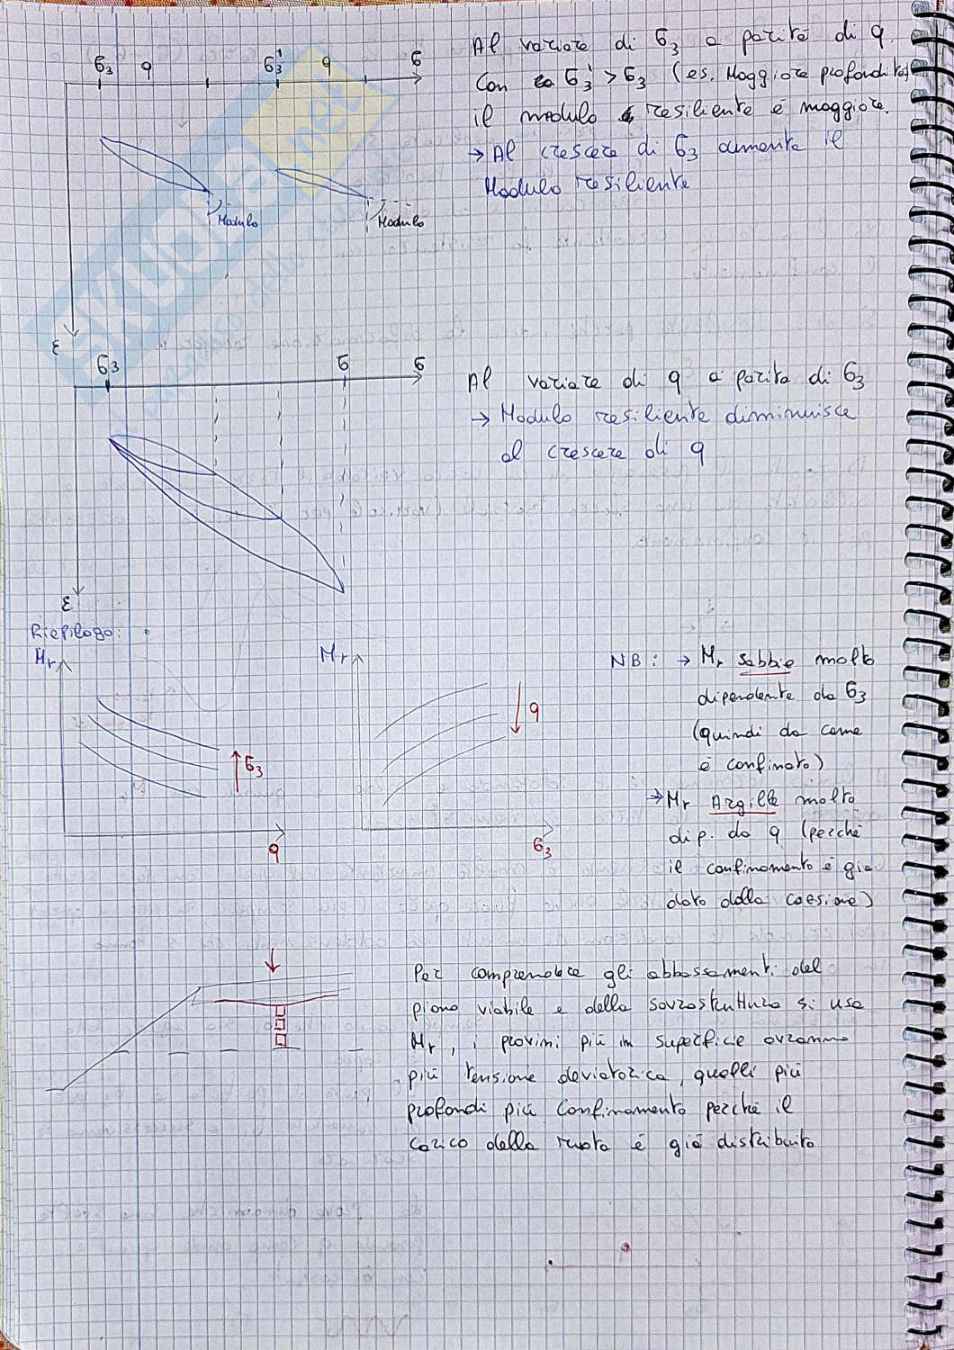 σ3 q σ3' q σ
Al variare di σ3 a parità di q
Con σ3' > σ3 (es. Maggiore profondità)
il modulo resiliente è maggiore.
→ Al crescere di σ3 aumenta il
Modulo resiliente
Modulo Modulo
ε
σ3 σ σ
Al variare di q a parità di σ3
→ Modulo resiliente diminuisce
al crescere di q
ε
Riepilogo:
Mr
σ3
q
Mr
q
σ3
NB: → Mr sabbie molto
dipendente da σ3
(quindi da come
è confinato)
→ Mr Argille molto
dip. da q (perché
il confinamento è già
dato dalla coesione)
Per comprendere gli abbassamenti del
piano viabile e della sovrastruttura si usa
Mr, i provini più in superfice avranno
più tensione deviatorica, quelli più
profondi più confinamento perché il
carico della ruota è già distribuito
SKUOLA.net